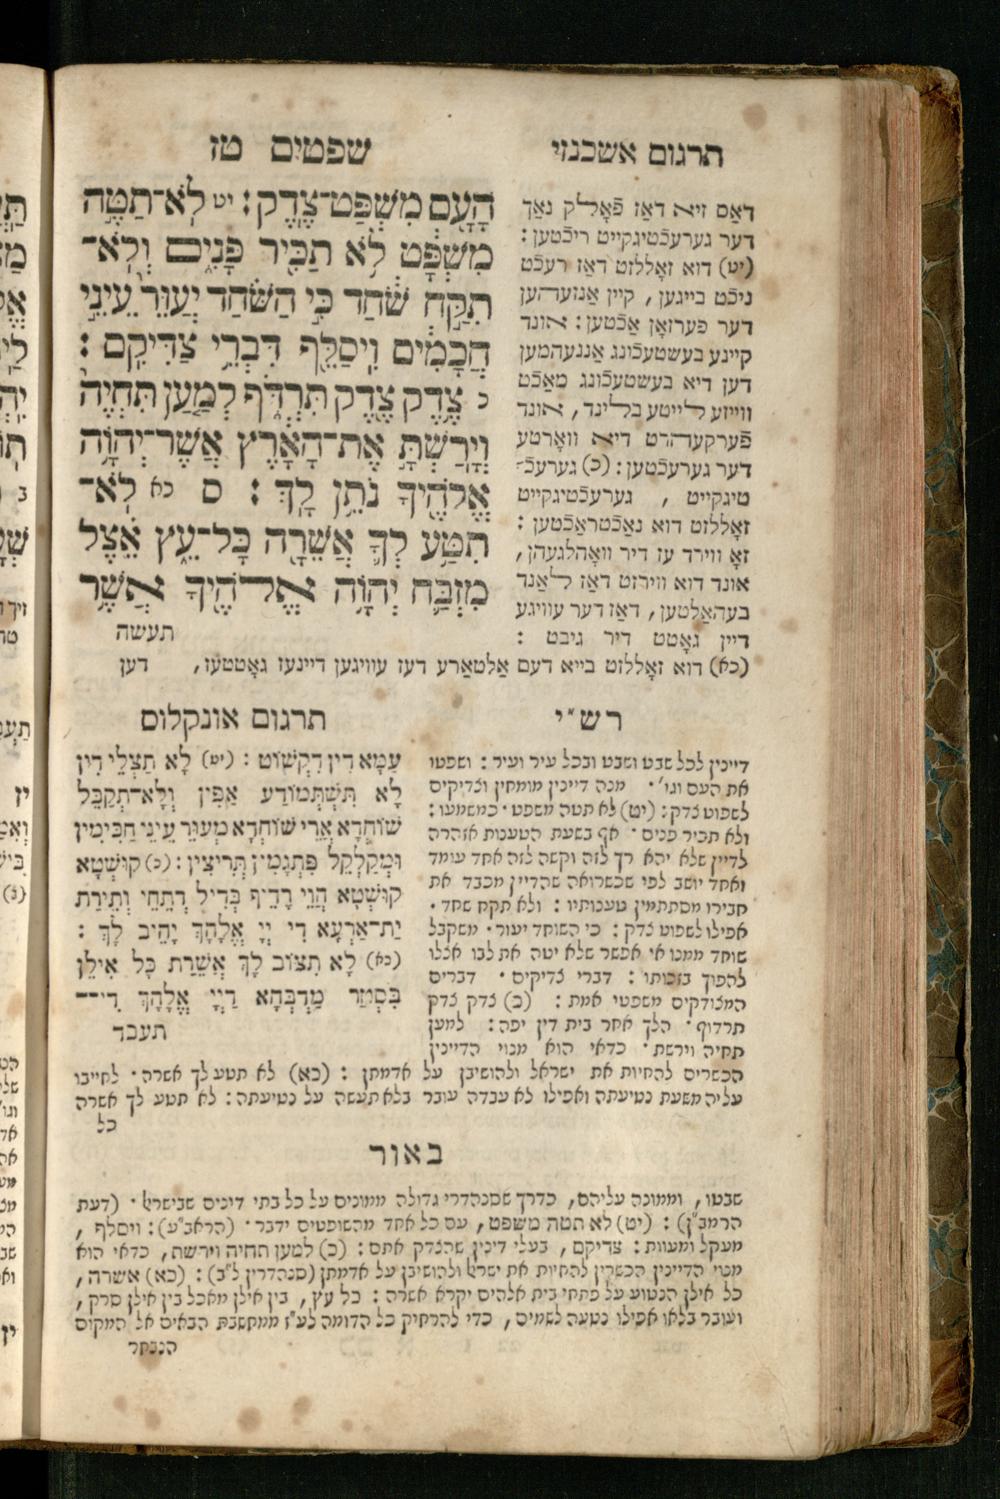 תרגום אשכנזי
שפטים טז
הָעָם מִשְׁפַּט־צֶדֶק: יט לֹא־תַטֶּה
מִשְׁפָּט לֹא תַכִּיר פָּנִים וְלֹא־
תִקַּח שֹׁחַד כִּי הַשֹּׁחַד יְעַוֵּר עֵינֵי
חֲכָמִים וִיסַלֵּף דִּבְרֵי צַדִּיקִם :
כ צֶדֶק צֶדֶק תִּרְדֹּף לְמַעַן תִּחְיֶה
וְיָרַשְׁתָּ אֶת־הָאָרֶץ אֲשֶׁר־יְהוָֹה
אֱלֹהֶיךָ נֹתֵן לָךְ : ס כא לֹא־
תִטַּע לְךָ אֲשֵׁרָה כָּל־עֵץ אֵצֶל
מִזְבַּח יְהוָֹה אֱלֹהֶיךָ אֲשֶׁר
תעשה
דאַס זיא דאַז פֿאָלק נאַך
דער גערעכֿטיגקייט ריכֿטען :
(יט) דוא זאָללזט דאַז רעכֿט
ניכֿט בייגען, קיין אַנזעהען
דער פערזאָן אַכֿטען : אונד
קיינע בעשטעכֿונג אַננעהמען
דען דיא בעשטעכֿונג מאַכֿט
ווייזע לייטע בלינד, אונד
פֿערקעהרט דיא וואָרטע
דער גערעכֿטען : (כ) גערעכֿ־
טיגקייט , גערעכֿטיגקייט
זאָללזט דוא נאַכֿטראַכֿטען :
זאָ ווירד עז דיר וואָהלגעהן,
אונד דוא ווירזט דאַז לאַנד
בעהאַלטען, דאַז דער עוויגע
דיין גאָטט דיר גיבט :
(כא) דוא זאָללזט בייא דעם אַלטאַרע דעז עוויגען דיינעז גאָטטעז, דען
רש"י
דיינין לכל שבט ושבט ובכל עיר ועיר : ושפטו
את העם וגו'· מנה דיינין מומחין וצדיקים
לשפוט צדק: (יט) לא תטה משפט· כמשמעו :
ולא תכיר פנים· אף בשעת הטענות אזהרה
לדיין שלא יהא רך לזה וקשה לזה אחד עומד
ואחד יושב לפי שכשרואה שהדיין מכבד את
חבירו מסתתמין טענותיו : ולא תקח שחד·
אפילו לשפוט צדק : כי השוחד יעור· משקבל
שוחד ממנו אי אפשר שלא יטה את לבו אצלו
להפוך בזכותו : דברי צדיקים· דברים
המצודקים משפטי אמת : (כ) צדק צדק
תרדוף· הלך אחר בית דין יפה : למען
תחיה וירשת· כדאי הוא מנוי הדיינין
הכשרים להחיות את ישראל ולהושיבן על אדמתן : (כא) לא תטע לך אשרה· לחייבו
עליה משעת נטיעתה ואפילו לא עבדה עובר בלא תעשה על נטיעתה : לא תטע לך אשרה
כל
תרגום אונקלוס
עַמָּא דִין דִקְשׁוֹט : (יט) לָא תַצְלֵי דִין
לָא תִּשְׁתְּמוֹדַע אַפִּין וְלָא־תְקַבֵּל
שׁוֹחֲדָא אֲרֵי שׁוֹחֲדָא מְעַוֵּר עֵינֵי חַכִּימִין
וּמְקַלְקֵל פִּתְגָמִין תְּרִיצִין : (כ) קוּשְׁטָא
קוּשְׁטָא הֲוֵי רָדֵיף בְּדִיל דְתֵחֵי וְתֵירַת
יַת־אַרְעָא דִי יְיָ אֱלָהָךְ יָהֵיב לָךְ :
(כא) לָא תִצּוֹב לָךְ אֲשֵׁרַת כָּל אִילָן
בִּסְטַר מַדְבְּחָא דַיְיָ אֱלָהָךְ דִי־
תעבד
באור
שבטו, וממונה עליהם, כדרך שסנהדרי גדולה ממונים על כל בתי דינים שבישראל· (דעת
הרמב"ן) : (יט) לא תטה משפט, עם כל אחד מהשופטים ידבר· (הראב"ע) : ויסלף ,
מעקל ומעוות : צדיקם, בעלי דינין שהצדק אתם : (כ) למען תחיה וירשת, כדאי הוא
מנוי הדיינין הכשרין להחיות את ישראל ולהושיבן על אדמתן (סנהדרין ל"ב) : (כא) אשרה,
כל אילן הנטוע על פתחי בית אלהים יקרא אשרה : כל עץ, בין אילן מאכל בין אילן סרק,
ועובר בלאו אפילו נטעה לשמים, כדי להרחיק כל הדומה לע"ז ממחשבת הבאים אל המקום
הנבחר